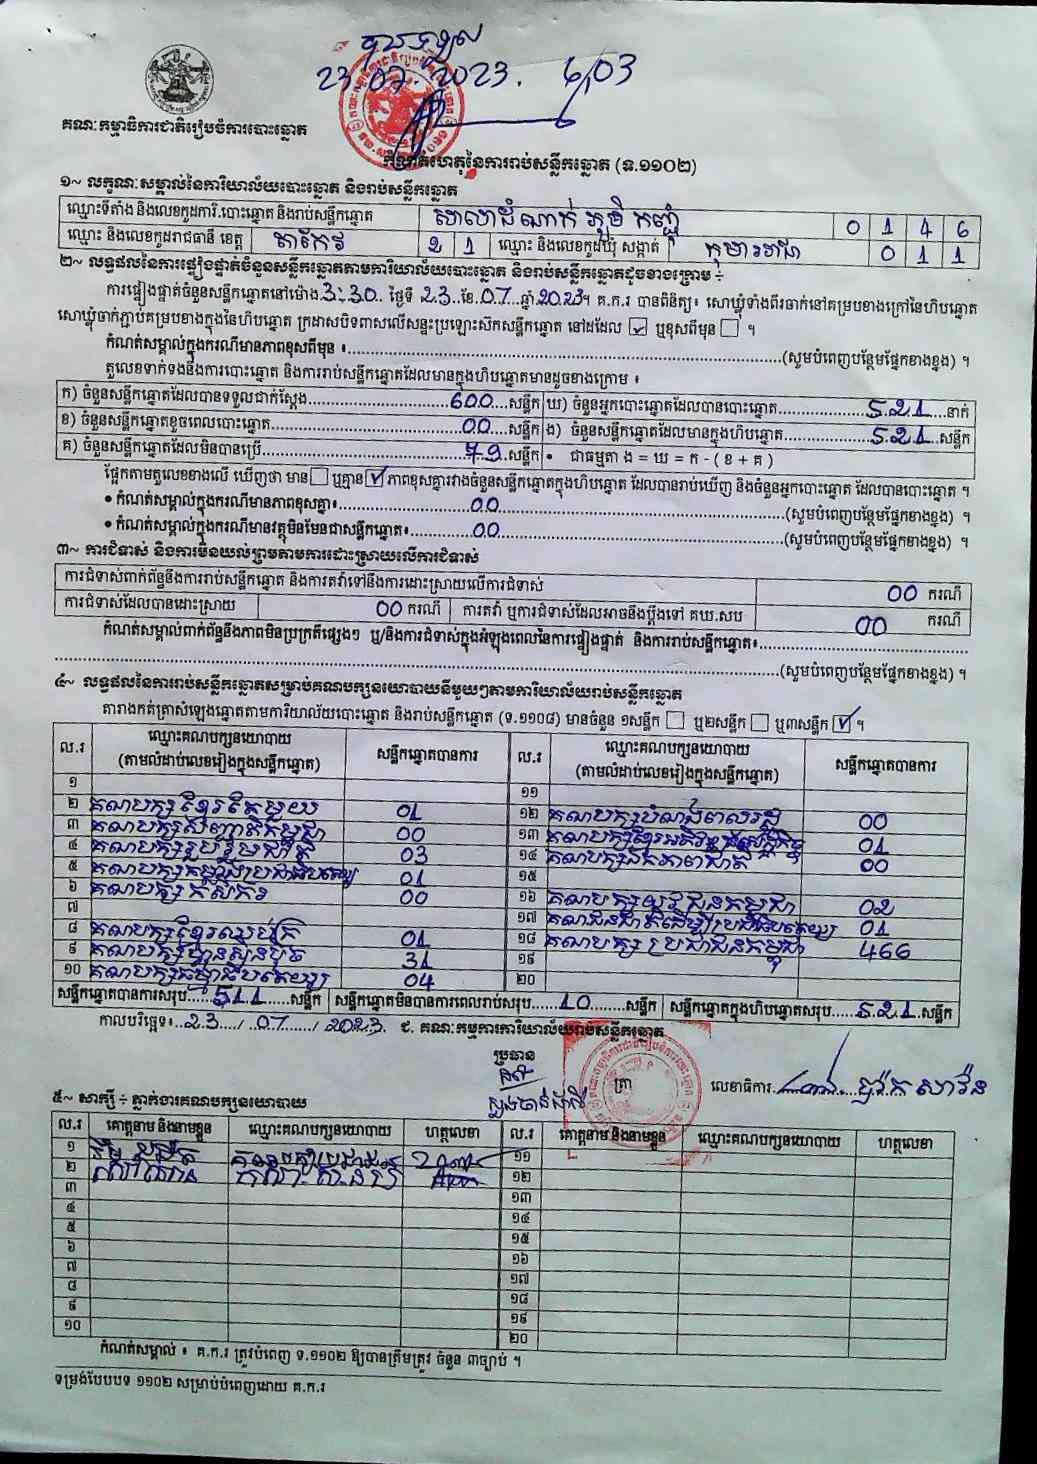 បានទទួល
23.07.2023. 6,03
គណៈកម្មាធិការជាតិរៀបចំការបោះឆ្នោត
កំណត់ហេតុនៃការរាប់សន្លឹកឆ្នោត (ទ.១១០២)
១~ លក្ខណៈសម្គាល់នៃការិយាល័យបោះឆ្នោត និងរាប់សន្លឹកឆ្នោត
ឈ្មោះទីតាំង និងលេខកូដការិ.បោះឆ្នោត និងរាប់សន្លឹកឆ្នោត សាលាដំណាក់ ភូមិ កញ្ជុំ 0 1 4 6
ឈ្មោះ និងលេខកូដរាជធានី ខេត្ត តាកែវ 2 1 ឈ្មោះ និងលេខកូដឃុំ សង្កាត់ កុមាររាជា 0 1 1
២~ លទ្ធផលនៃការផ្ទៀងផ្ទាត់ចំនួនសន្លឹកឆ្នោតតាមការិយាល័យបោះឆ្នោត និងរាប់សន្លឹកឆ្នោតដូចខាងក្រោម ÷
ការផ្ទៀងផ្ទាត់ចំនួនសន្លឹកឆ្នោតនៅម៉ោង.3:30. ថ្ងៃទី 23..ខែ.07..ឆ្នាំ.2023។ គ.ក.រ បានពិនិត្យ៖ សោឃ្លុំទាំងពីរចាក់នៅគម្របខាងក្រៅនៃហិបឆ្នោត
សោឃ្លុំចាក់ភ្ជាប់គម្របខាងក្នុងនៃហិបឆ្នោត ក្រដាសបិទពាសលើសន្ទះប្រឡោះស៊កសន្លឹកឆ្នោត នៅដដែល ☑ ឬខុសពីមុន ☐ ។
កំណត់សម្គាល់ក្នុងករណីមានភាពខុសពីមុន ៖...(សូមបំពេញបន្ថែមផ្នែកខាងខ្នង) ។
តួលេខទាក់ទងនឹងការបោះឆ្នោត និងការរាប់សន្លឹកឆ្នោតដែលមានក្នុងហិបឆ្នោតមានដូចខាងក្រោម ៖
ក) ចំនួនសន្លឹកឆ្នោតដែលបានទទួលជាក់ស្តែង...600...សន្លឹក ឃ) ចំនួនអ្នកបោះឆ្នោតដែលបានបោះឆ្នោត...521...នាក់
ខ) ចំនួនសន្លឹកឆ្នោតខូចពេលបោះឆ្នោត...00...សន្លឹក ង) ចំនួនសន្លឹកឆ្នោតដែលមានក្នុងហិបឆ្នោត...521.សន្លឹក
គ) ចំនួនសន្លឹកឆ្នោតដែលមិនបានប្រើ...79.សន្លឹក • ជាធម្មតា ង = ឃ = ក - ( ខ + គ )
ផ្អែកតាមតួលេខខាងលើ ឃើញថា មាន ☐ ឬគ្មាន ☑ ភាពខុសគ្នារវាងចំនួនសន្លឹកឆ្នោតក្នុងហិបឆ្នោត ដែលបានរាប់ឃើញ និងចំនួនអ្នកបោះឆ្នោត ដែលបានបោះឆ្នោត ។
• កំណត់សម្គាល់ក្នុងករណីមានភាពខុសគ្នា៖...00...(សូមបំពេញបន្ថែមផ្នែកខាងខ្នង) ។
• កំណត់សម្គាល់ក្នុងករណីមានវត្ថុមិនមែនជាសន្លឹកឆ្នោត៖...00...(សូមបំពេញបន្ថែមផ្នែកខាងខ្នង) ។
៣~ ការជំទាស់ និងការមិនយល់ព្រមតាមការដោះស្រាយលើការជំទាស់
ការជំទាស់ពាក់ព័ន្ធនឹងការរាប់សន្លឹកឆ្នោត និងការតវ៉ាទៅនឹងការដោះស្រាយលើការជំទាស់ 00 ករណី
ការជំទាស់ដែលបានដោះស្រាយ 00 ករណី ការតវ៉ា ឬការជំទាស់ដែលអាចនឹងប្តឹងទៅ គឃ.សប 00 ករណី
កំណត់សម្គាល់ពាក់ព័ន្ធនឹងភាពមិនប្រក្រតីផ្សេងៗ ឬ/និងការជំទាស់ក្នុងអំឡុងពេលនៃការផ្ទៀងផ្ទាត់ និងការរាប់សន្លឹកឆ្នោត៖...
...(សូមបំពេញបន្ថែមផ្នែកខាងខ្នង) ។
៤~ លទ្ធផលនៃការរាប់សន្លឹកឆ្នោតសម្រាប់គណបក្សនយោបាយនីមួយៗតាមការិយាល័យរាប់សន្លឹកឆ្នោត
តារាងកត់ត្រាសំឡេងឆ្នោតតាមការិយាល័យបោះឆ្នោត និងរាប់សន្លឹកឆ្នោត (ទ.១១០៨) មានចំនួន ១សន្លឹក ☐ ឬ២សន្លឹក ☐ ឬ៣សន្លឹក ☑ ។
ល.រ ឈ្មោះគណបក្សនយោបាយ (តាមលំដាប់លេខរៀងក្នុងសន្លឹកឆ្នោត) សន្លឹកឆ្នោតបានការ ល.រ ឈ្មោះគណបក្សនយោបាយ (តាមលំដាប់លេខរៀងក្នុងសន្លឹកឆ្នោត) សន្លឹកឆ្នោតបានការ
១ ១១
២ គណបក្សខ្មែរតែមួយ 01 ១២ គណបក្សបំណងពលរដ្ឋ 00
៣ គណបក្សសញ្ជាតិកម្ពុជា 00 ១៣ គណបក្សខ្មែរអភិវឌ្ឍន៍សេដ្ឋកិច្ច 01
៤ គណបក្សរួបរួមជាតិ 03 ១៤ គណបក្សឯកភាពជាតិ 00
៥ គណបក្សកម្លាំងប្រជាធិបតេយ្យ 01 ១៥
៦ គណបក្ស កសិករ 00 ១៦ គណបក្សយុវជនកម្ពុជា 02
៧ ១៧ គណជនជាតិដើម្បីប្រជាធិបតេយ្យ 01
៨ គណបក្សខ្មែរឈប់ក្រ 01 ១៨ គណបក្ស ប្រជាជនកម្ពុជា 466
៩ គណបក្សហ្វ៊ុនស៊ិនប៉ិច 31 ១៩
១០ គណបក្សធម្មាធិបតេយ្យ 04 ២០
សន្លឹកឆ្នោតបានការសរុប...511...សន្លឹក សន្លឹកឆ្នោតមិនបានការពេលរាប់សរុប...10...សន្លឹក សន្លឹកឆ្នោតក្នុងហិបឆ្នោតសរុប...521.សន្លឹក
កាលបរិច្ឆេទ៖..23.../.07.../.2023. ជ. គណៈកម្មការការិយាល័យរាប់សន្លឹកឆ្នោត
ប្រធាន
ត្រា លេខាធិការ
៥~ សាក្សី ÷ ភ្នាក់ងារគណបក្សនយោបាយ
ល.រ គោត្តនាម និងនាមខ្លួន ឈ្មោះគណបក្សនយោបាយ ហត្ថលេខា ល.រ គោត្តនាម និងនាមខ្លួន ឈ្មោះគណបក្សនយោបាយ ហត្ថលេខា
១ គណបក្សប្រជាជន ១១
២ ១២
៣ ១៣
៤ ១៤
៥ ១៥
៦ ១៦
៧ ១៧
៨ ១៨
៩ ១៩
១០ ២០
កំណត់សម្គាល់ ៖ គ.ក.រ ត្រូវបំពេញ ទ.១១០២ ឱ្យបានត្រឹមត្រូវ ចំនួន ៣ច្បាប់ ។
ទម្រង់បែបបទ ១១០២ សម្រាប់បំពេញដោយ គ.ក.រ